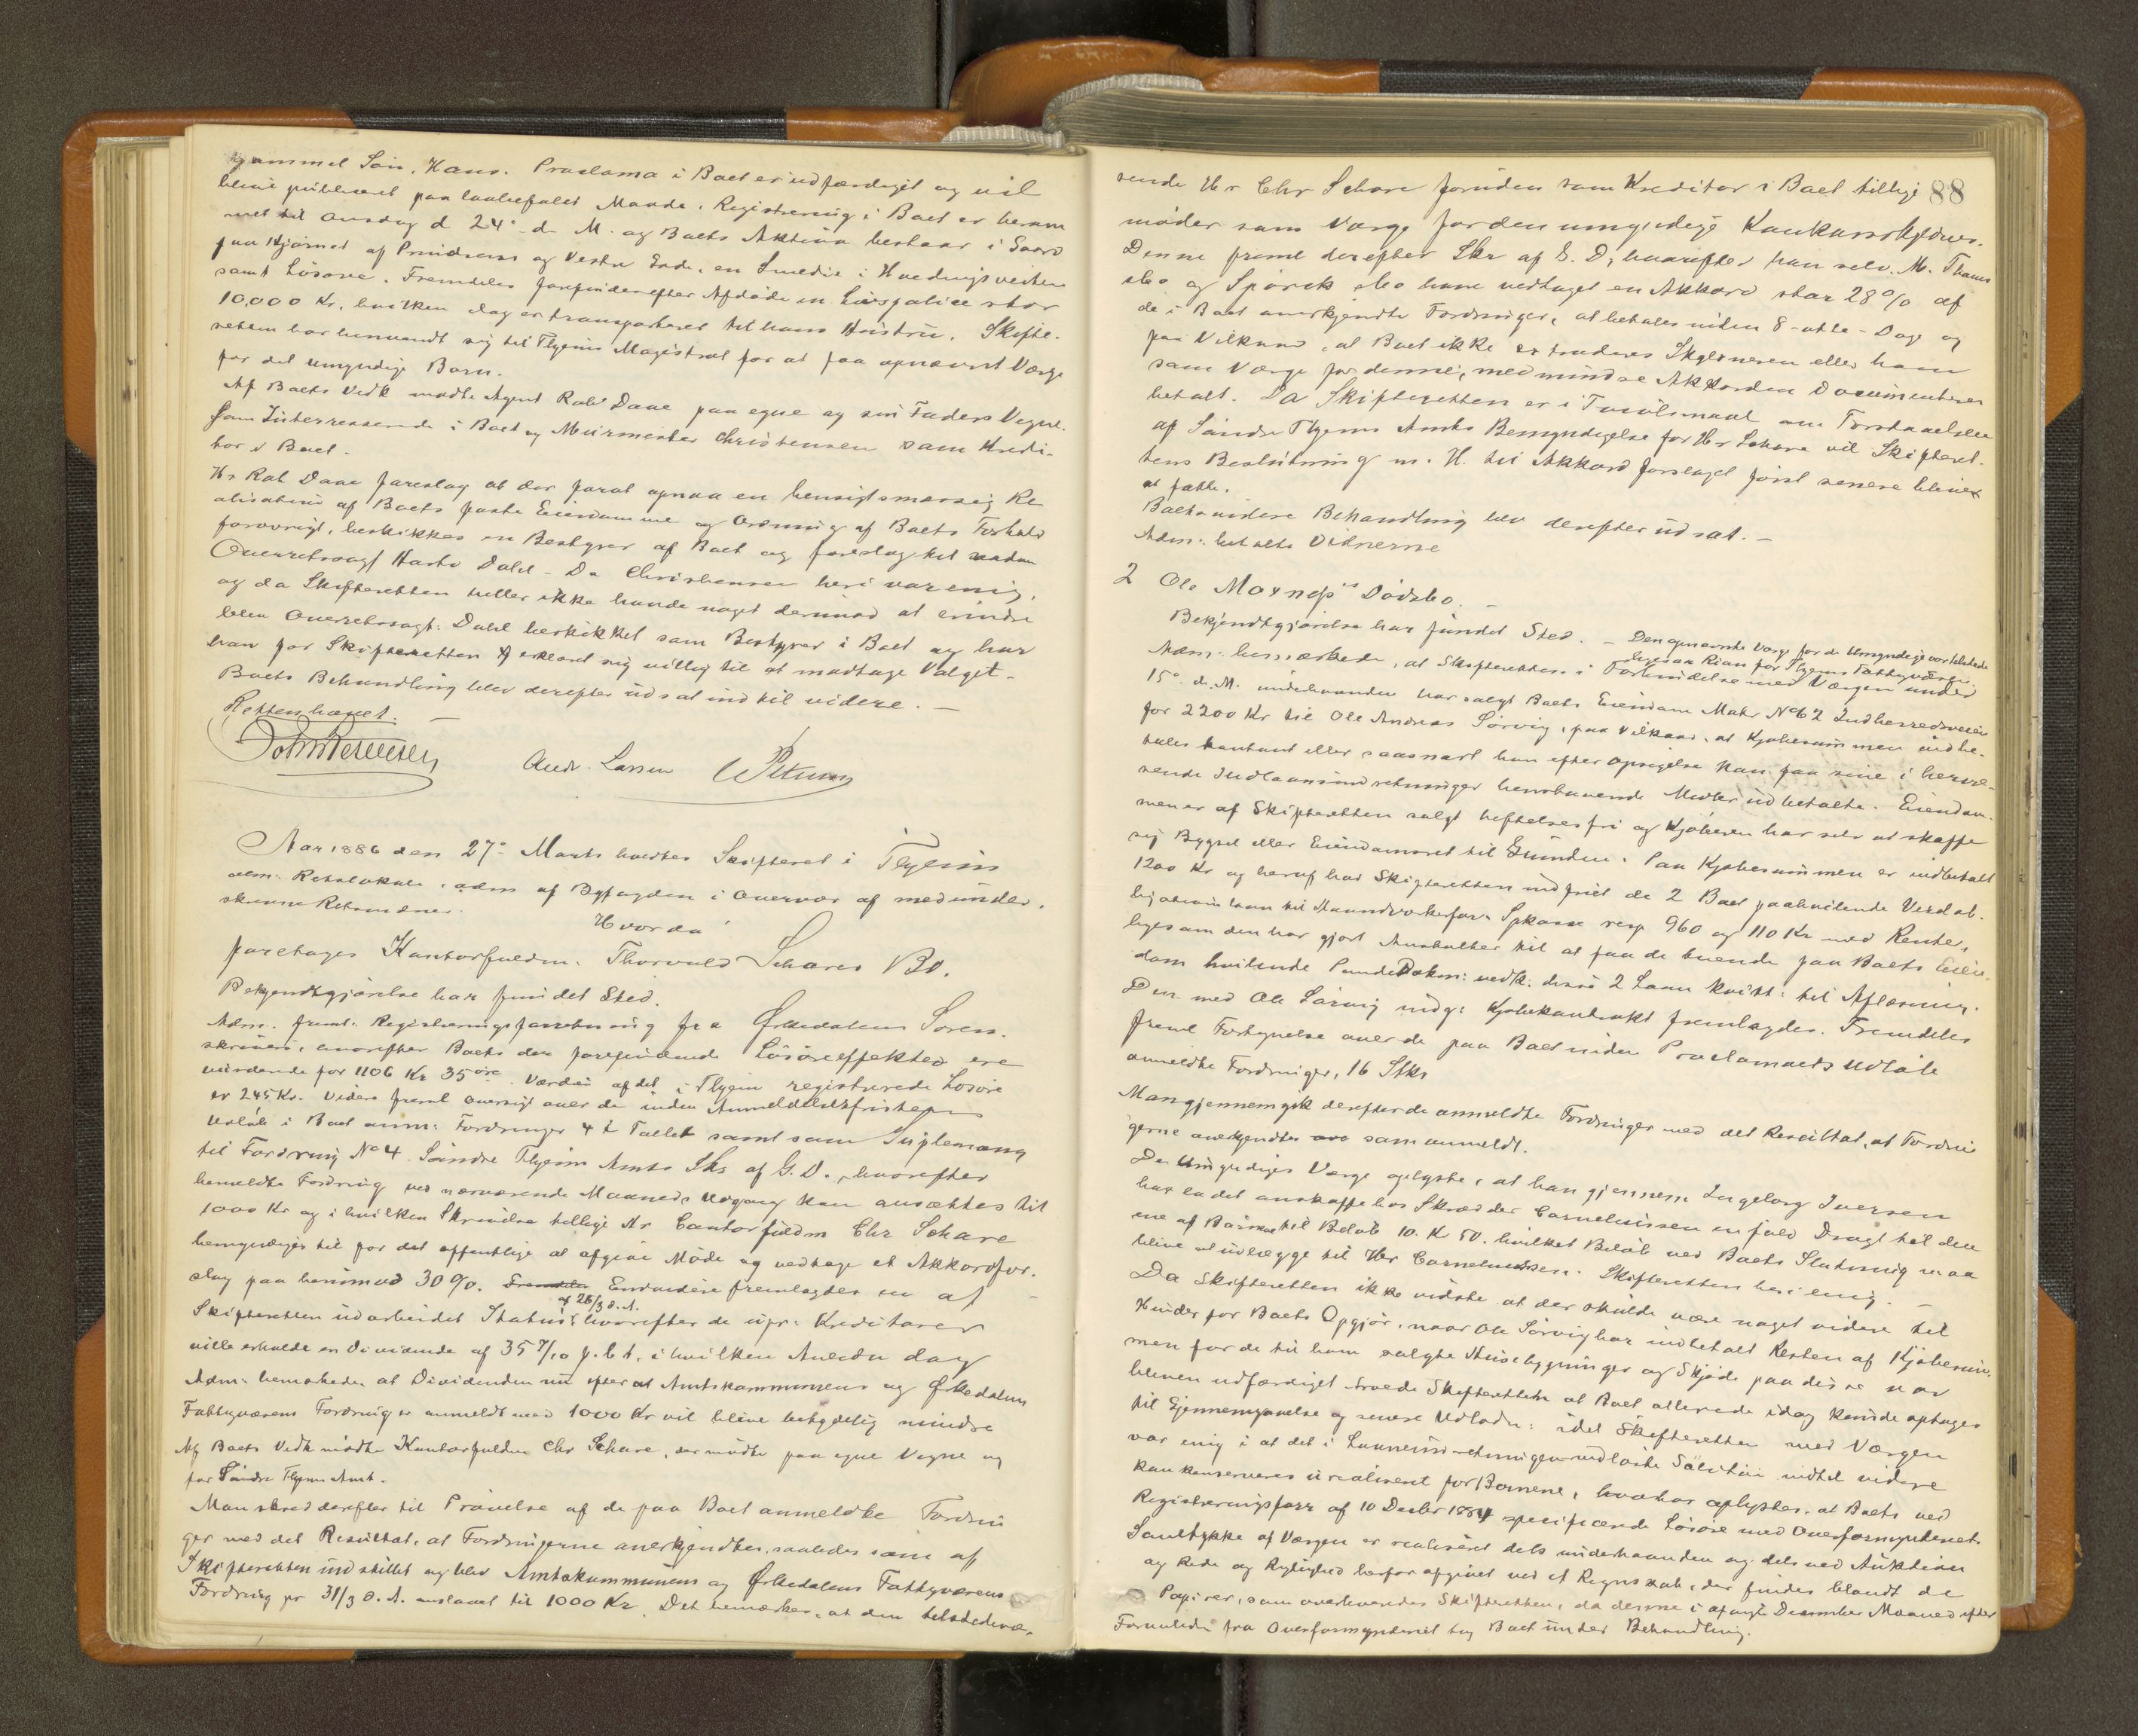 gammel Søn, Hans. Proclama i Boet er udfærdiget og vil
blive publiceret paa lovbefalet Maade. Registrering i Boet er beram
met til Onsdag d 24de d. M. og Boets Aktiva bestaar i Gaard
paa Hjørnet af Prindsens og Vestre Gade, en Smedie i Hvedingsveiten
samt Løsøre. Fremdeles forefindes efter Afdøde en Livspolice stor
10,000 Kr, hvilken dog er transporteret til hans Hustru. Skifte-
retten har henvendt sig til Thjems Magistrat for at faa opnævnt Værge
for det umyndige Barn.
Af Boets Vedk mødte Agent Rob Daae paa egne og sin Faders Vegne
som Interresserende i Boet og Muurmester Christensen som Kredi-
tor i Boet.
Hr Rob Daae foreslog at der for at opnaa en hensigtsmæssig Re
alisation af Boets faste Eiendomme og Ordning af Boets Forhold
forøvrigt, beskikkes en Bestyrer af Boet og foreslog til saadan
Overretssagf Hartv Dahl - Da Christensen heri var enig,
og da Skifteretten heller ikke havde noget derimod at erindre
blev Overretssagf. Dahl beskikket som Bestyrer i Boet og har
han for Skifteretten erklæret sig villig til at modtage Valget -
Boets Behandling blev derefter udsat indtil videre. -
Retten hævet. -
Andr. Larsen
Aar 1886 den 27de Marts holdtes Skifteret i Thjem
alm. Retslokale, adm af Byfogden i Overvær af medunder.
skrevne Retsvidner.
Hvorda
foretoges Kontorfuldm. Thorvald Schares Bo.
Bekjendtgjørelse har fundet Sted.
Adm. freml. Registreringsforretning fra Ørkedalens Soren.
skriveri, hvorefter Boets der forefindende Løsøreeffekter ere
vurderede for 1106 Kr 35 øre. Værdien af det i Thjem registrerede Løsøre
er 245 Kr. Videre freml Oversigt over de inden Anmeldelsesfristens
Udløb i Boet anm: Fordringer 4 i Tallet samt som Suplement
til Fordring No 4. Søndre Thjems Amts Skr af G. D., hvorefter
bemeldte Fordring ved nærværende Maaneds Udgang kan ansættes til
1000 Kr og i hvilken Skrivelse tillige Hr Contorfuldm Chr Schare
bemyndiges til for det offentlige at afgive Møde og vedtage et Akkordfor.
slag paa henimod 30 %. Endvidere fremlagdes en af
Skifteretten udarbeidet Status af 26/3 d. A. hvorefter de upr: Kreditorer
ville erholde en Dividende af 35 7/10 p. Ct., i hvilken Anledn dog
Adm. bemærkede at Dividenden nu efter at Amtskommunens og Ørkedalens
Fattigvæsens Fordring er anmeldt med 1000 Kr vil blive betydelig mindre
Af Boets Vedk mødte Kontorfuldm Chr Schare, der mødte paa egne Vegne og
for Søndre Thjems Amt.
Man skred derefter til Prøvelse af de paa Boet anmeldte Fordrin
ger med det Resultat, at Fordringerne anerkjendtes, saaledes som af
Skifteretten indstillet og blev Amtskommunens og Ørkedalens Fattigvæsens
Fordring pr 31/3 d. A. anslaaet til 1000 Kr. Det bemærkes, at den tilstedevæ-
88
rende Hr Chr Schare foruden som Kreditor i Boet tillige
møder som Værge for den umyndige Konkursskyldner.
Denne freml derefter Skr af G. D, hvorefter han selv. M. Thams
& Co og Spørck & Co have vedtaget en Akkord stor 28 % af
de i Boet anerkjendte Fordringer, at betales inden 8 - otte - Dage og
paa Vilkaar, at Boet ikke extraderes Skyldneren eller ham
som Værge for denne, medmindre Akkorden Documenteres
betalt. Da Skifteretten er i Tvivlsmaal om Forstaaelsen
af Søndre Thjems Amts Bemyndigelse for Hr Schare vil Skifteret-
tens Beslutning m. H. til Akkordforslaget først senere blive
at fatte.
Boets videre Behandling blev derefter udsat. -
Adm. betalte Vidnerne
2 Ole Moxnes's Dødsbo. -
Bekjendtgjørelse har fundet Sted. - Den opnævnte Værge for de Umyndige var tilstede
ligesaa Rian for Thjems Fattigvæsen.
Adm. bemærkede, at Skifteretten i Forbindelse med Værgen under
15de d. M. underhaanden har solgt Boets Eiendom Matr No 62 Indherredsveien
for 2200 Kr til Ole Andreas Sørvig, paa Vilkaar, at Kjøbesummen indbe-
tales kontant eller saasnart han efter Opsigelse kan faa sine i herva-
rende Indlaansindretninger henstaaende Midler udbetalte. Eiendom-
men er af Skifteretten solgt heftelsesfri og Kjøberen har selv at skaffe
sig Bygsel eller Eiendomsret til Grunden. Paa Kjøbesummen er indbetalt
1200 Kr og heraf har Skifteretten indfriet de 2 Boet paahvilende
til Haandværkerfor. Spkasse resp 960 og 110 Kr med Renter,
ligesom den har gjort Anstalter til at faa de tvende paa Boets Eien-
dom hvilende PandeDokm: vedk. disse 2 Laan kvitt. til Aflæsning.
Den med Ole Sørvig indg: Kjøbekontrakt fremlagdes. Fremdeles
freml Fortegnelse over de paa Boet inden Proclamaets Udløb
anmeldte Fordringer, 16 Stkr
Man gjennemgik derefter de anmeldte Fordringer med det Resultat, at Fordrin
gerne anerkjendtes som anmeldt.
De Umyndiges Værge oplyste, at han gjennem Ingeborg Iversen
har ladet anskaffe hos Skrædder Corneliussen en fuld Dragt til den
ene af Børnene til Beløb 10. Kr 50. hvilket Beløb ved Boets Slutning maa
blive at udlægge til Hr Corneliussen. Skifteretten heri enig. -
Da Skifteretten ikke vidste at der skulde være noget videre til
Hinder for Boets Opgjør, naar Ole Sørvig har indbetalt Resten af Kjøbesum.
men for de til ham solgte Husebygninger og Skjøde paa disse var
bleven udfærdiget troede Skifteretten at Boet allerede idag kunde optages
til Gjennemgaaelse og senere Udlodn: idet Skifteretten med Værgen
var enig i at det i Laaneindretningen indløste Sølvtøi indtil videre
kan konserveres urealiseret for Børnene, hvorhos oplystes, at Boets ved
Registreringsforr af 10 Decbr 1884 specificerede Løsøre med Overformynderiets
Samtykke af Værgen er realiseret dels underhaanden og dels ved Auktion
og Rede og Rigtighed herfor afgivet ved et Regnskab, der findes blandt de
Papirer, som overleveredes Skifteretten, da denne i afvigte December Maaned efter
Formeden fra Overformynderiet tog Boet under Behandling.